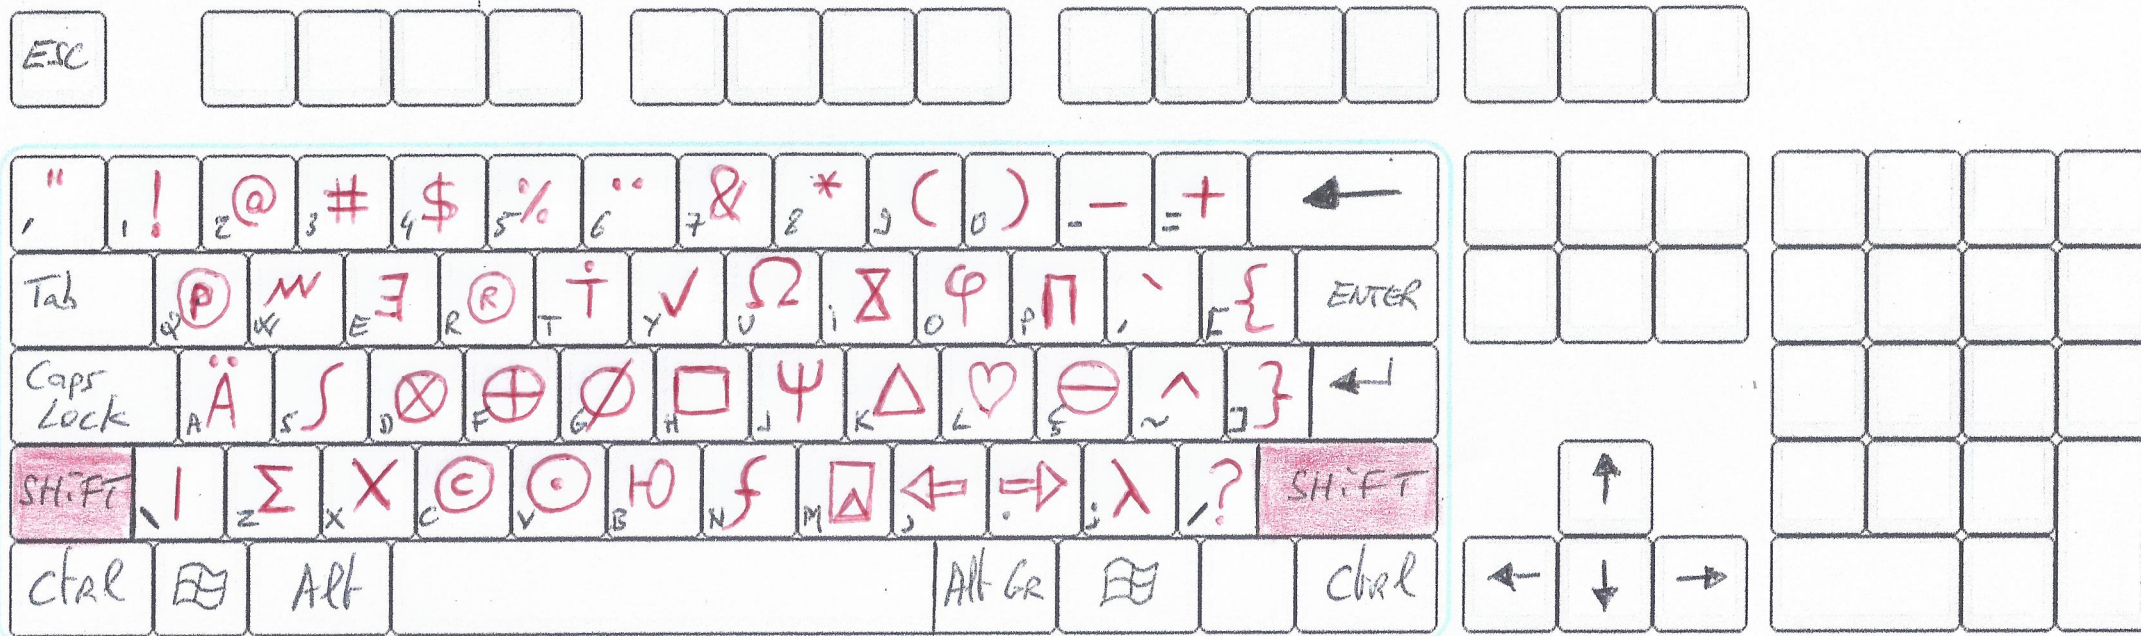 ESC
" ' ! 1 @ 2 # 3 $ 4 % 5 ¨ 6 & 7 * 8 ( 9 ) 0 — - + = ←
Tab Ⓟ Q W E ∃ R ® T Y √ U Ω i O φ P Π ` [ { ENTER
Caps Lock A Ä S ∫ D ⊗ F ⊕ G Ø H □ J Ψ K △ L ♡ § ⊖ ~ ^ ] } ↵
SHiFT \ | Z Σ X X C © V ⊙ B Ю N ƒ M , ⇐ . ⇒ ; λ / ? SHiFT
Ctrl Alt Alt Gr Ctrl ← ↑ ↓ →